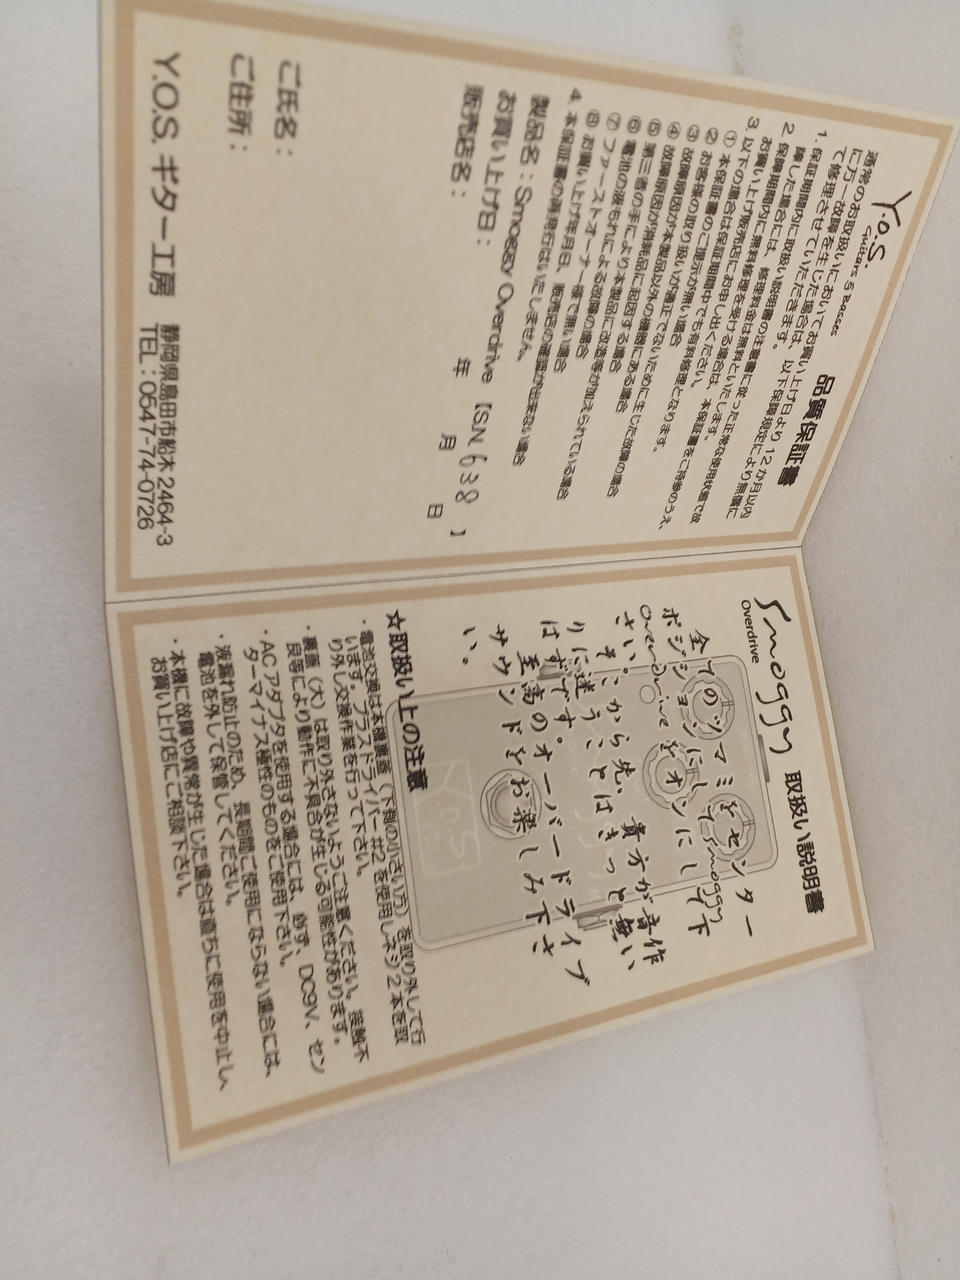 Y.O.S.
Guitars & Basses
品質保証書
通常のお取扱いにおいてお買い上げ日より12か月以内
に万一故障を生じた場合は、以下保障規定により無償に
て修理させていただきます。
1. 保証期間内に取扱い説明書の注意書に従った正常な使用状態で故
障した場合には、修理料金は無料といたします。
2. 保障期間内に無料修理を受ける場合は、本保証書をご持参のうえ、
お買い上げ販売店にお申し出ください。
3. 以下の場合は保証期間中でも有料修理となります。
① 本保証書のご提示が無い場合
② お客様の取り扱いが適正でないために生じた故障の場合
③ 故障原因が本製品以外の機器にある場合
④ 故障原因が消耗品に起因する場合
⑤ 第三者の手により本製品に改造等が加えられている場合
⑥ 電池の液もれによる故障の場合
⑦ ファーストオーナー様で無い場合
⑧ お買い上げ年月日、販売店の確認が出来ない場合
4. 本保証書の再発行はいたしません。
製品名：Smoggy Overdrive 【SN 638 】
お買い上げ日： 年 月 日
販売店名：
ご氏名：
ご住所：
Y.O.S. ギター工房 静岡県島田市船木2464-3
TEL：0547-74-0726
Smoggy 取扱い説明書
Overdrive
全てのツマミをセンター
ポジションにしてSmoggy
Over Driveをオンにして下
さい。そこから先、貴方が音作
りに迷うことはきっと無い
はずです。
至高のオーバードライブ
サウンドをお楽しみ下さ
い。
Y.O.S
☆取扱い上の注意
・電池交換は本機裏蓋（下側の小さい方）を取り外して行
います。プラスドライバー#2を使用しネジ2本を取
り外し交換作業を行って下さい。
・裏蓋（大）は取り外さないようご注意ください。接触不
良等により動作に不具合が生じる可能性があります。
・ACアダプタを使用する場合には、必ず、DC9V、セン
ターマイナス極性のものをご使用下さい。
・液漏れ防止のため、長期間ご使用にならない場合には、
電池を外して保管してください。
・本機に故障や異常が生じた場合は直ちに使用を中止し、
お買い上げ店にご相談下さい。